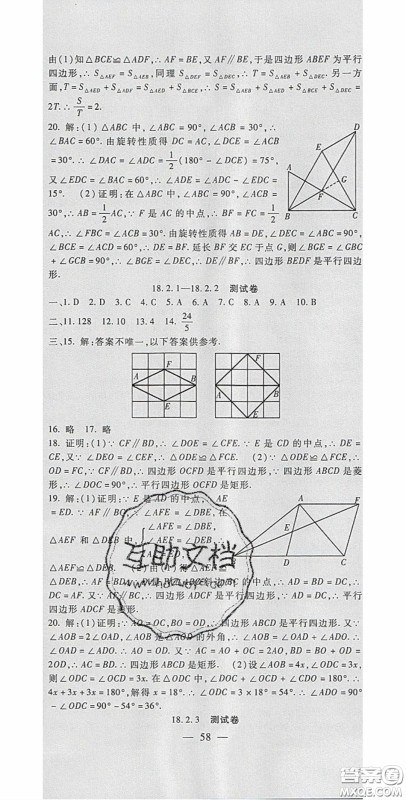 由(1)知△BCE≌△ADF,∴AF=BE,又AF∥BE,于是四边形ABEF为平行
四边形,∴S△AEF=S△AEB,同理S△DEF=S△DEC,∴T=S△AEB+S△DEC.另一方
面,T=S△AED+S△DEF=S△AED+S△BCE,∴S=S△AEB+S△DEC+S△AED+S△BCE=
2T.∴S/T=2.
20. 解:(1)△ABC中,∠ABC=90°,∠ACB=30°,∴
∠BAC=60°.由旋转性质得DC=AC,∠DCE=∠ACB
=30°.∴∠DAC=∠ADC=1/2(180°-∠DCE)=75°,
又∠EDC=∠BAC=60°.∴∠ADE=∠ADC-∠EDC=
15°. (2)证明:在△ABC中,∠ABC=90°,∠ACB=
30°,∴AB=1/2AC,∵F是AC的中点,∴BF=FC=1/2
AC,∴∠FBC=30°.由旋转性质得AB=DE,∠DEC=∠ABC=90°,∠BCE
=∠ACD=60°,∴DE=BF.延长BF交EC于点G,则∠BGE=∠GBC+
∠GCB=90°,∴∠BGE=∠DEC,∴DE∥BF,∴四边形BEDF是平行四边
形.
18.2.1—18.2.2 测试卷
一、1. D 2. D 3. C 4. C 5. B 6. C 7. C 8. C 9. A 10. B
二、11. 128 12. 10 13. 4 14. 24/5
三、15. 解:答案不唯一,以下答案供参考.
A F B E
A F B E
16. 略 17. 略
18. 证明:(1)∵CF∥BD,∴∠DOE=∠CFE.∵E是CD的中点,∴DE=
CE,又∠DEO=∠CEF,∴△ODE≌△FCE. (2)∵△ODE≌△FCE,∴
OD=FC,∵CF∥BD,∴四边形OCFD是平行四边形.∵四边形ABCD是菱
形,∴AC⊥BD,∴四边形OCFD是矩形.
19. 解:(1)证明:∵E是AD的中点,∴AE
=ED.∵AF∥BC,∴∠AFE=∠DBE.在
△AEF和△DEB中,
△AEF≌△DEB. (2)由(1)知△AEF≌
△DEB,∴AF=DB.
DC=AF.又∵AF∥DC,∴四边形ADCF是平行四边形.∵AD=DC,∴平行
四边形ADCF是菱形.
20. 解:(1)证明:∵AO=OC,BO=OD,∴四边形ABCD是平行四边形.又
∵∠AOB=2∠OAD,∠AOB是△AOD的外角,∴∠AOB=∠OAD+∠ADO.∴
∠OAD=∠ADO.∴AO=OD.又∵AC=AO+OC=2AO,BD=BO+OD=
2OD,∴AC=BD.∴四边形ABCD是矩形. (2)设∠AOB=4x,∠ODC=
3x,则∠OCD=∠ODC=3x.在△ODC中,∠DOC+∠OCD+∠ODC=180°.∴
4x+3x+3x=180°,解得x=18°,∴∠ODC=3×18°=54°,∴∠ADO=90°
-∠ODC=90°-54°=36°.
18.2.3 测试卷
— 58 —
互助文档